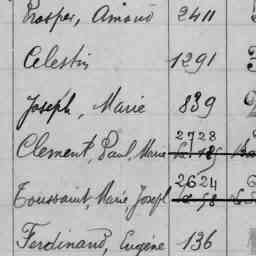 Prosper, Amand 2411
Celestin 1291
Joseph, Marie 839
Clement, Paul, Marie 2728
Toussaint, Marie, Joseph 2624
Ferdinand, Eugène 136